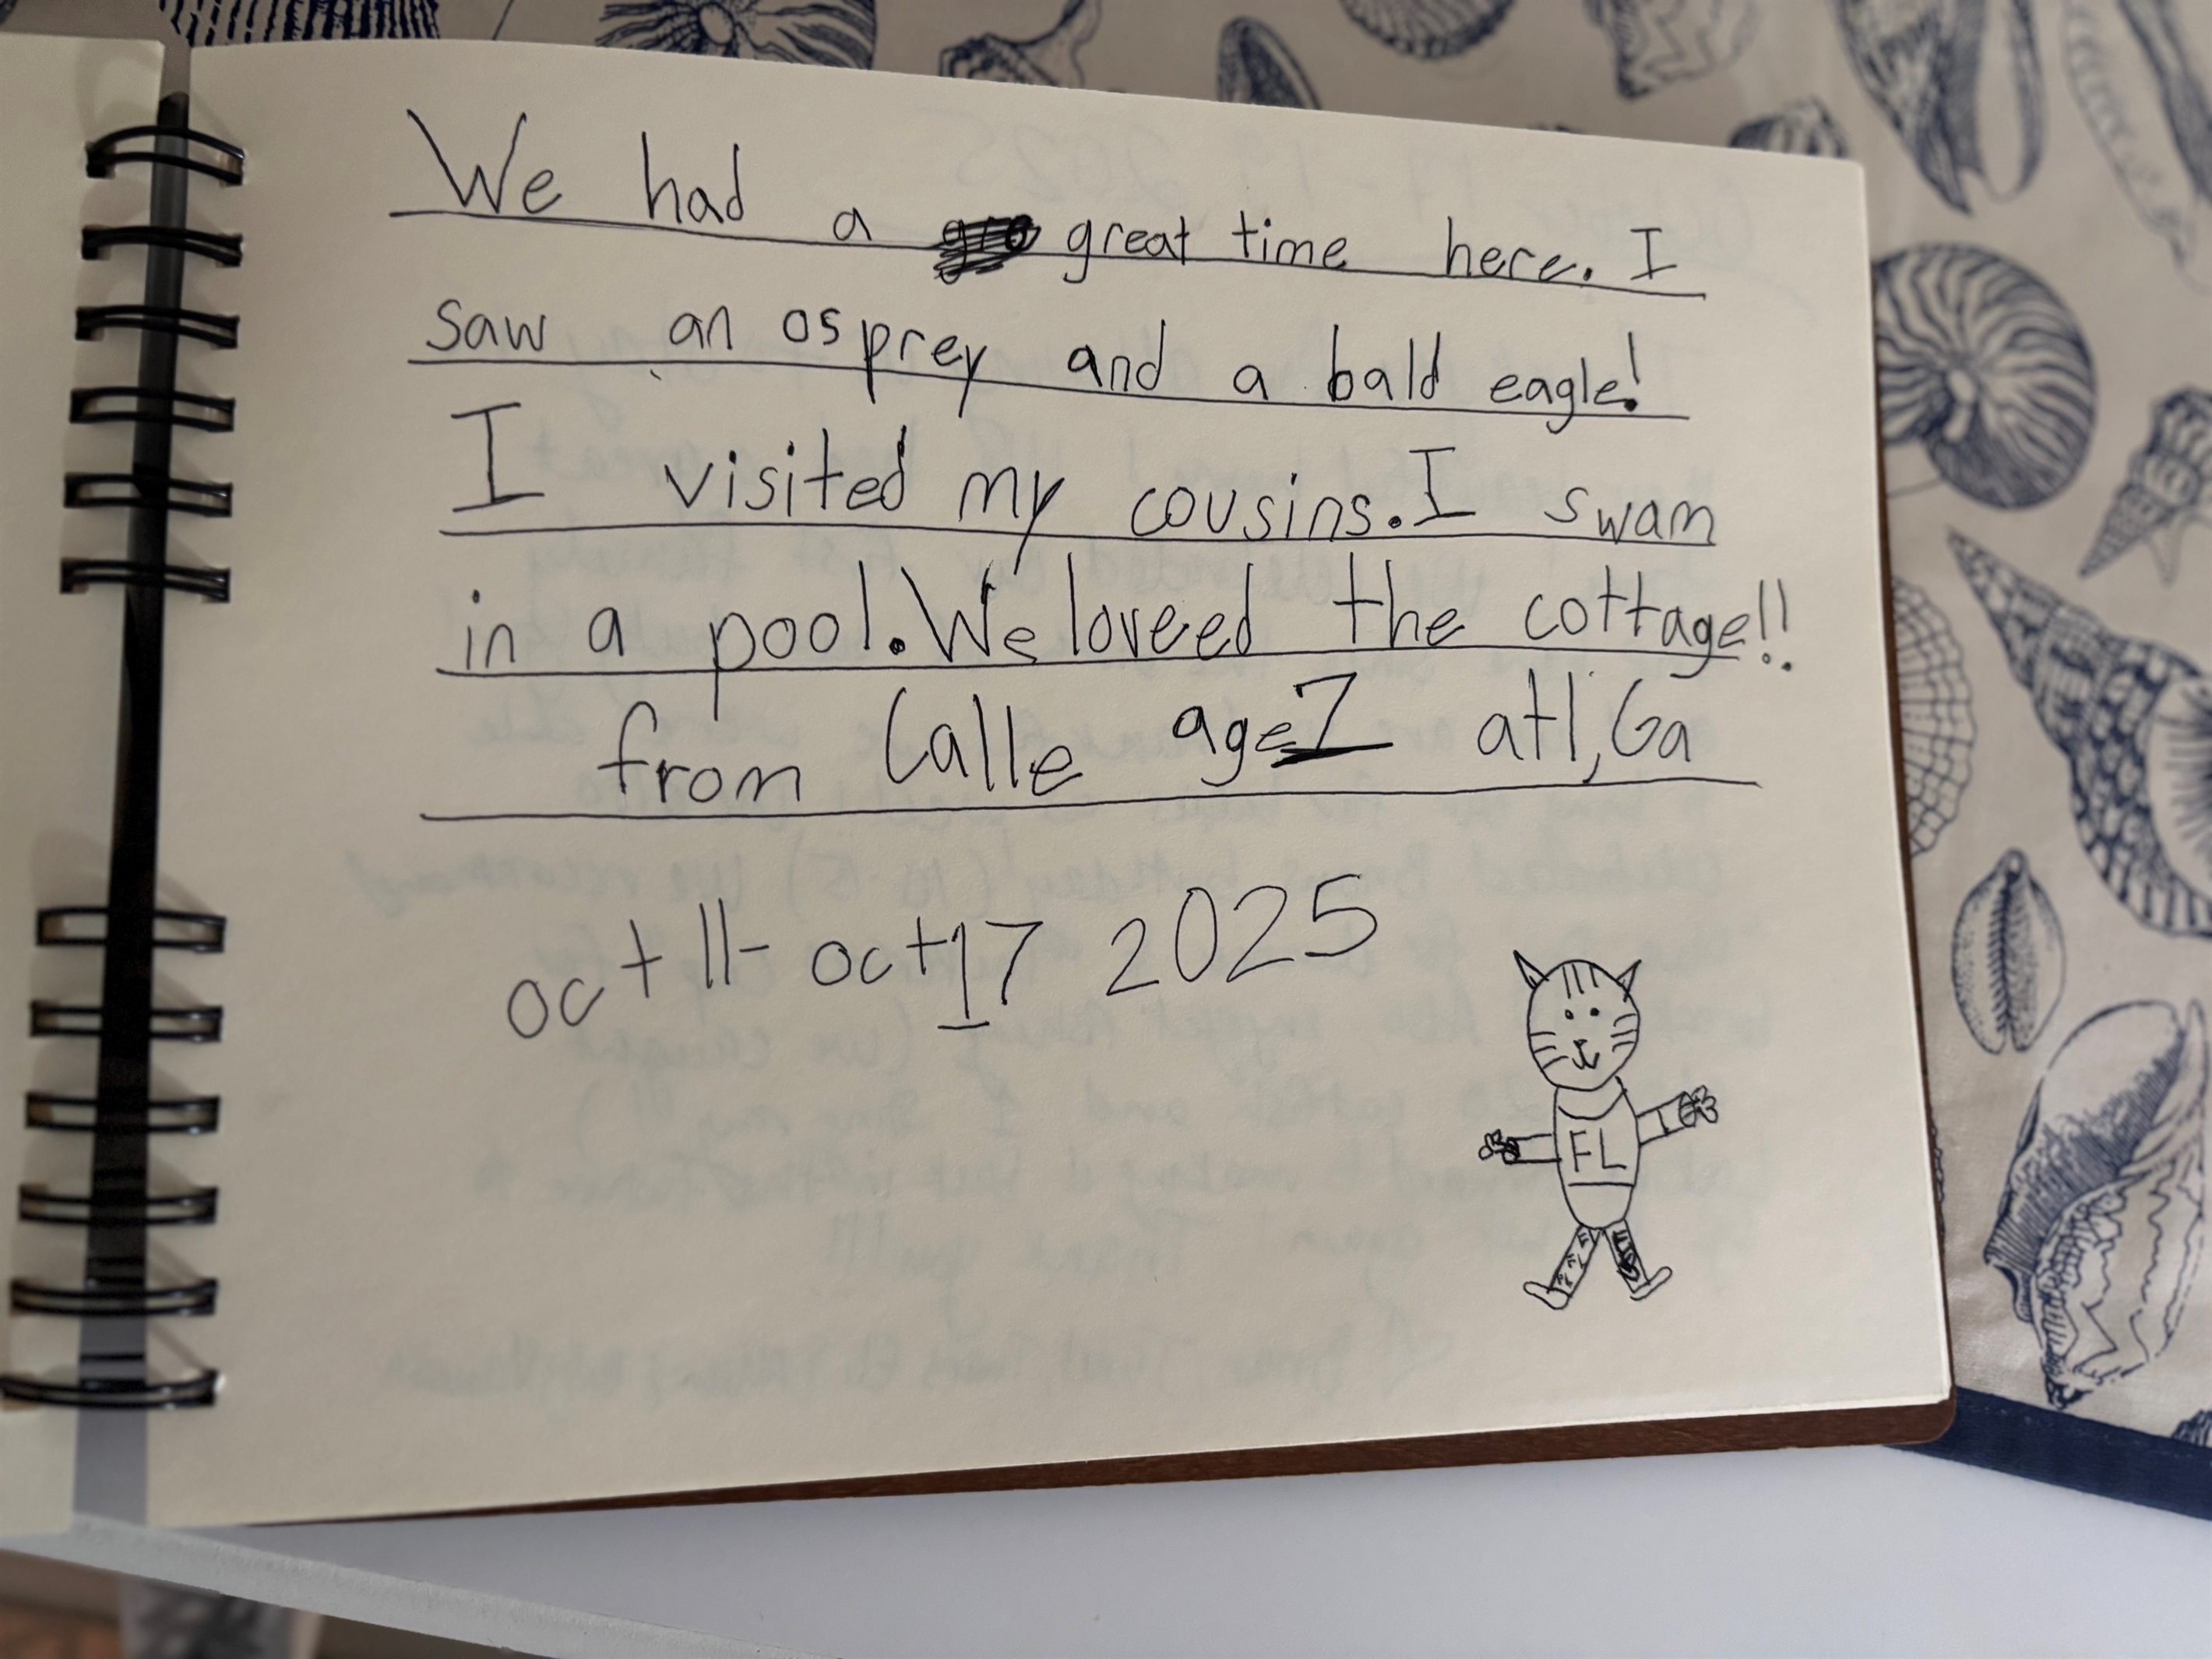 We had a great time here. I
saw an osprey and a bald eagle!
I visited my cousins. I swam
in a pool. We loveed the cottage!!
from Calle age 7 atl, Ga
oct 11- oct 17 2025
FL